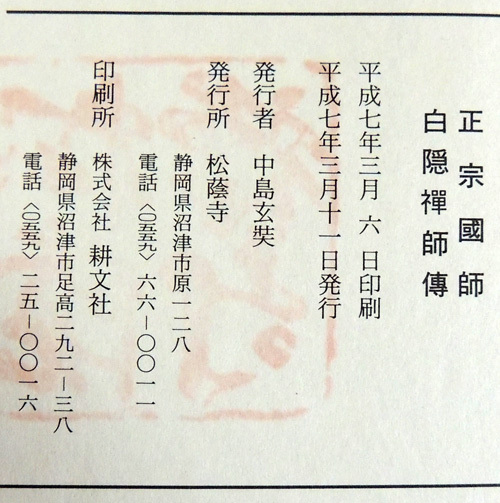 正宗國師
白隠禪師傳
平成七年三月 六 日印刷
平成七年三月十一日発行
発行者 中島玄奘
発行所 松蔭寺
静岡県沼津市原一二八
電話〈〇五五九〉六六―〇〇一一
印刷所 株式会社 耕文社
静岡県沼津市足高二九二―三八
電話〈〇五五九〉二五―〇〇一六